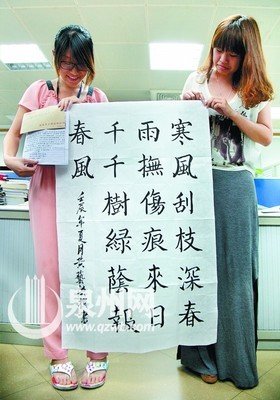 寒風刮枝深春
雨撫傷痕來日
千千樹綠蔭報
春風
壬辰年夏月黃藝
泉州网
www.qzwb.com